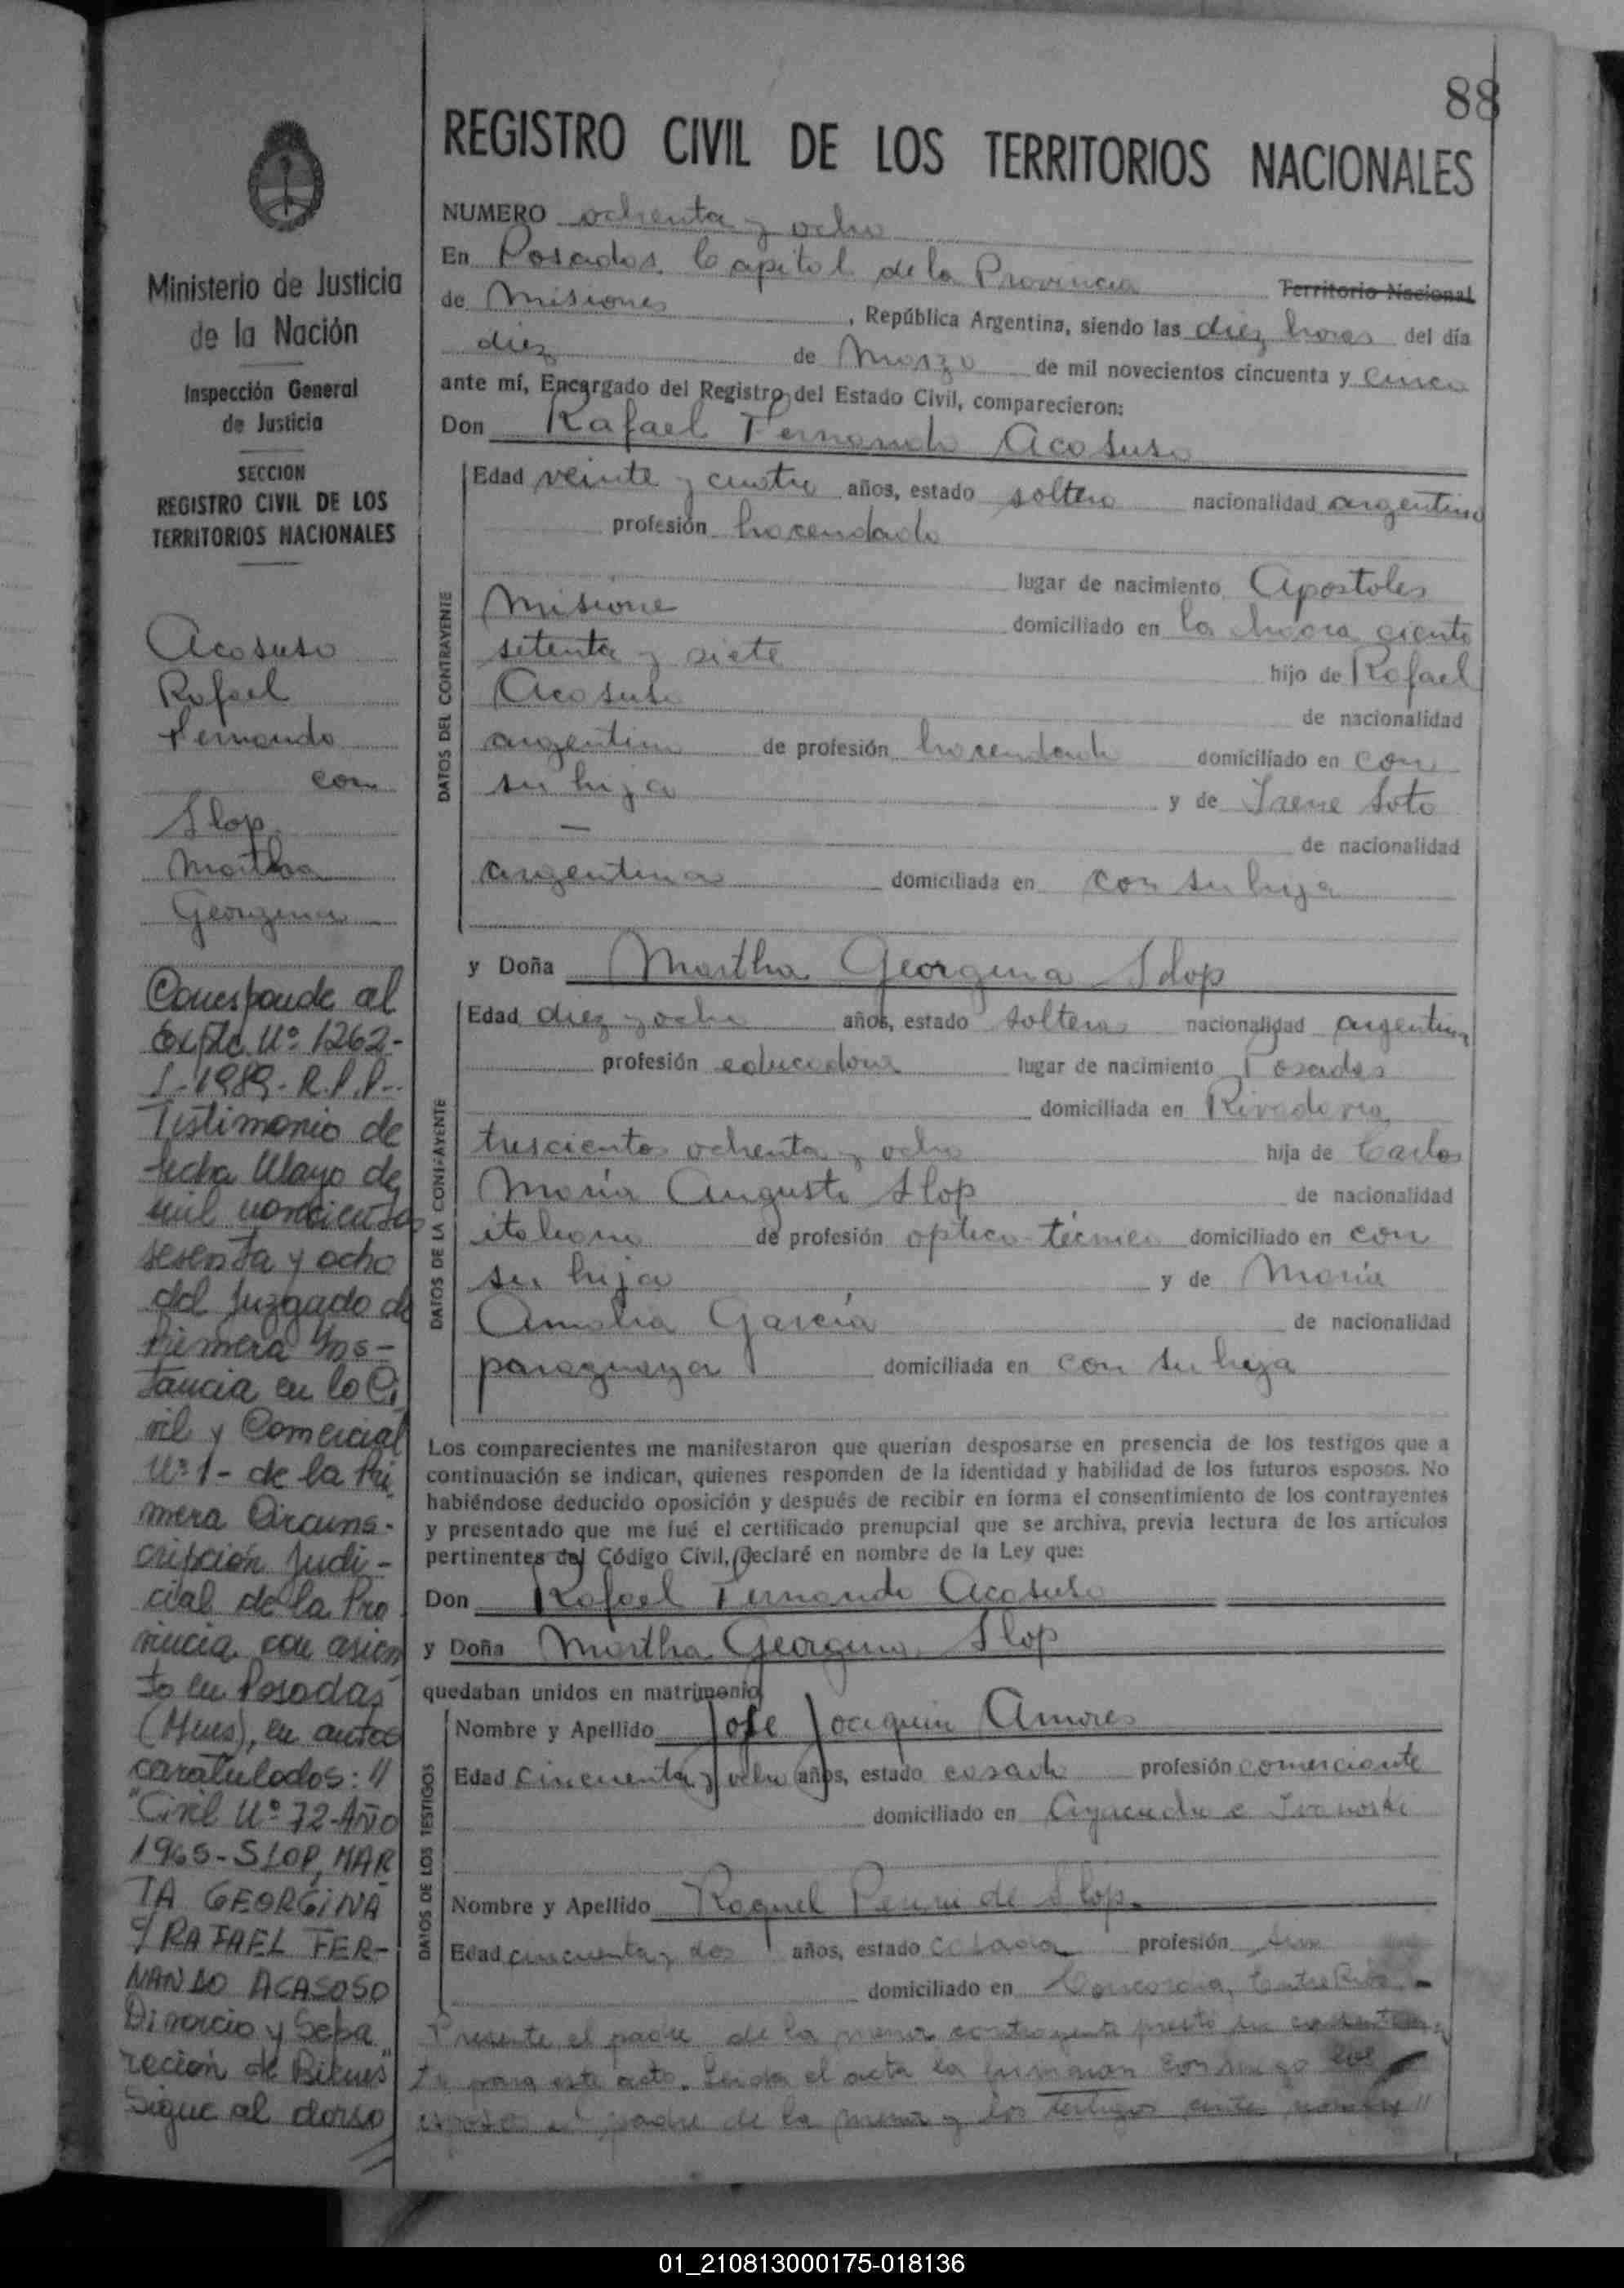 88
REGISTRO CIVIL DE LOS TERRITORIOS NACIONALES
Ministerio de Justicia
de la Nación
Inspección General
de Justicia
SECCION
REGISTRO CIVIL DE LOS
TERRITORIOS NACIONALES
Acosuso
Rafael
Fernando
con
Slop
Martha
Georgina
Corresponde al
Expte. Nº 1262-
1989- R.P.P.-
Testimonio de
fecha Mayo de
mil novecientos
sesenta y ocho
del Juzgado de
Primera Ins-
tancia en lo Ci
vil y Comercial
Nº 1- de la Pri
mera Circuns-
cripción Judi-
cial de la Pro
vincia con asien
to en Posadas
(Mnes), en autos
caratulados: //
"Civil Nº 72-Año
1965-SLOP, MAR
TA GEORGINA
c/ RAFAEL FER-
NANDO ACASOSO
Divorcio y Sepa
ración de Bienes"
Sigue al dorso
NUMERO ochenta y ocho
En Posadas, Capital de la Provincia Territorio Nacional
de Misiones, República Argentina, siendo las diez horas del día
diez de Marzo de mil novecientos cincuenta y cinco
ante mí, Encargado del Registro del Estado Civil, comparecieron:
Don Rafael Fernando Acosuso
DATOS DEL CONTRAYENTE
Edad veinte y cuatro años, estado soltero nacionalidad argentino
profesión hacendado
lugar de nacimiento Apostoles
Misione domiciliado en la chacra ciento
setenta y siete hijo de Rafael
Acosuso de nacionalidad
argentino de profesión hacendado domiciliado en con
su hija y de Irene Soto
— de nacionalidad
argentina domiciliada en con su hija
y Doña Martha Georgina Slop
DATOS DE LA CONTRAYENTE
Edad diez y ocho años, estado soltera nacionalidad argentina
profesión educadora lugar de nacimiento Posadas
domiciliada en Rivadavia
trescientos ochenta y ocho hija de Carlos
María Augusto Slop de nacionalidad
italiano de profesión optico técnico domiciliado en con
su hija y de María
Amalia García de nacionalidad
paraguaya domiciliada en con su hija
Los comparecientes me manifestaron que querían desposarse en presencia de los testigos que a
continuación se indican, quienes responden de la identidad y habilidad de los futuros esposos. No
habiéndose deducido oposición y después de recibir en forma el consentimiento de los contrayentes
y presentado que me fué el certificado prenupcial que se archiva, previa lectura de los artículos
pertinentes del Código Civil, declaré en nombre de la Ley que:
Don Rafael Fernando Acosuso
y Doña Martha Georgina Slop
quedaban unidos en matrimonio
DATOS DE LOS TESTIGOS
Nombre y Apellido José Joaquin Amores
Edad cincuenta y ocho años, estado casado profesión comerciante
domiciliado en Ayacucho e
Nombre y Apellido Raquel de Slop.
Edad cincuenta y dos años, estado casada profesión
domiciliado en Concordia, Entre Rios.-
Presente el padre de la menor contrayente prestó su
para este acto. Leida el acta la firmaron conmigo los
esposos el padre de la menor y los testigos //
01_210813000175-018136